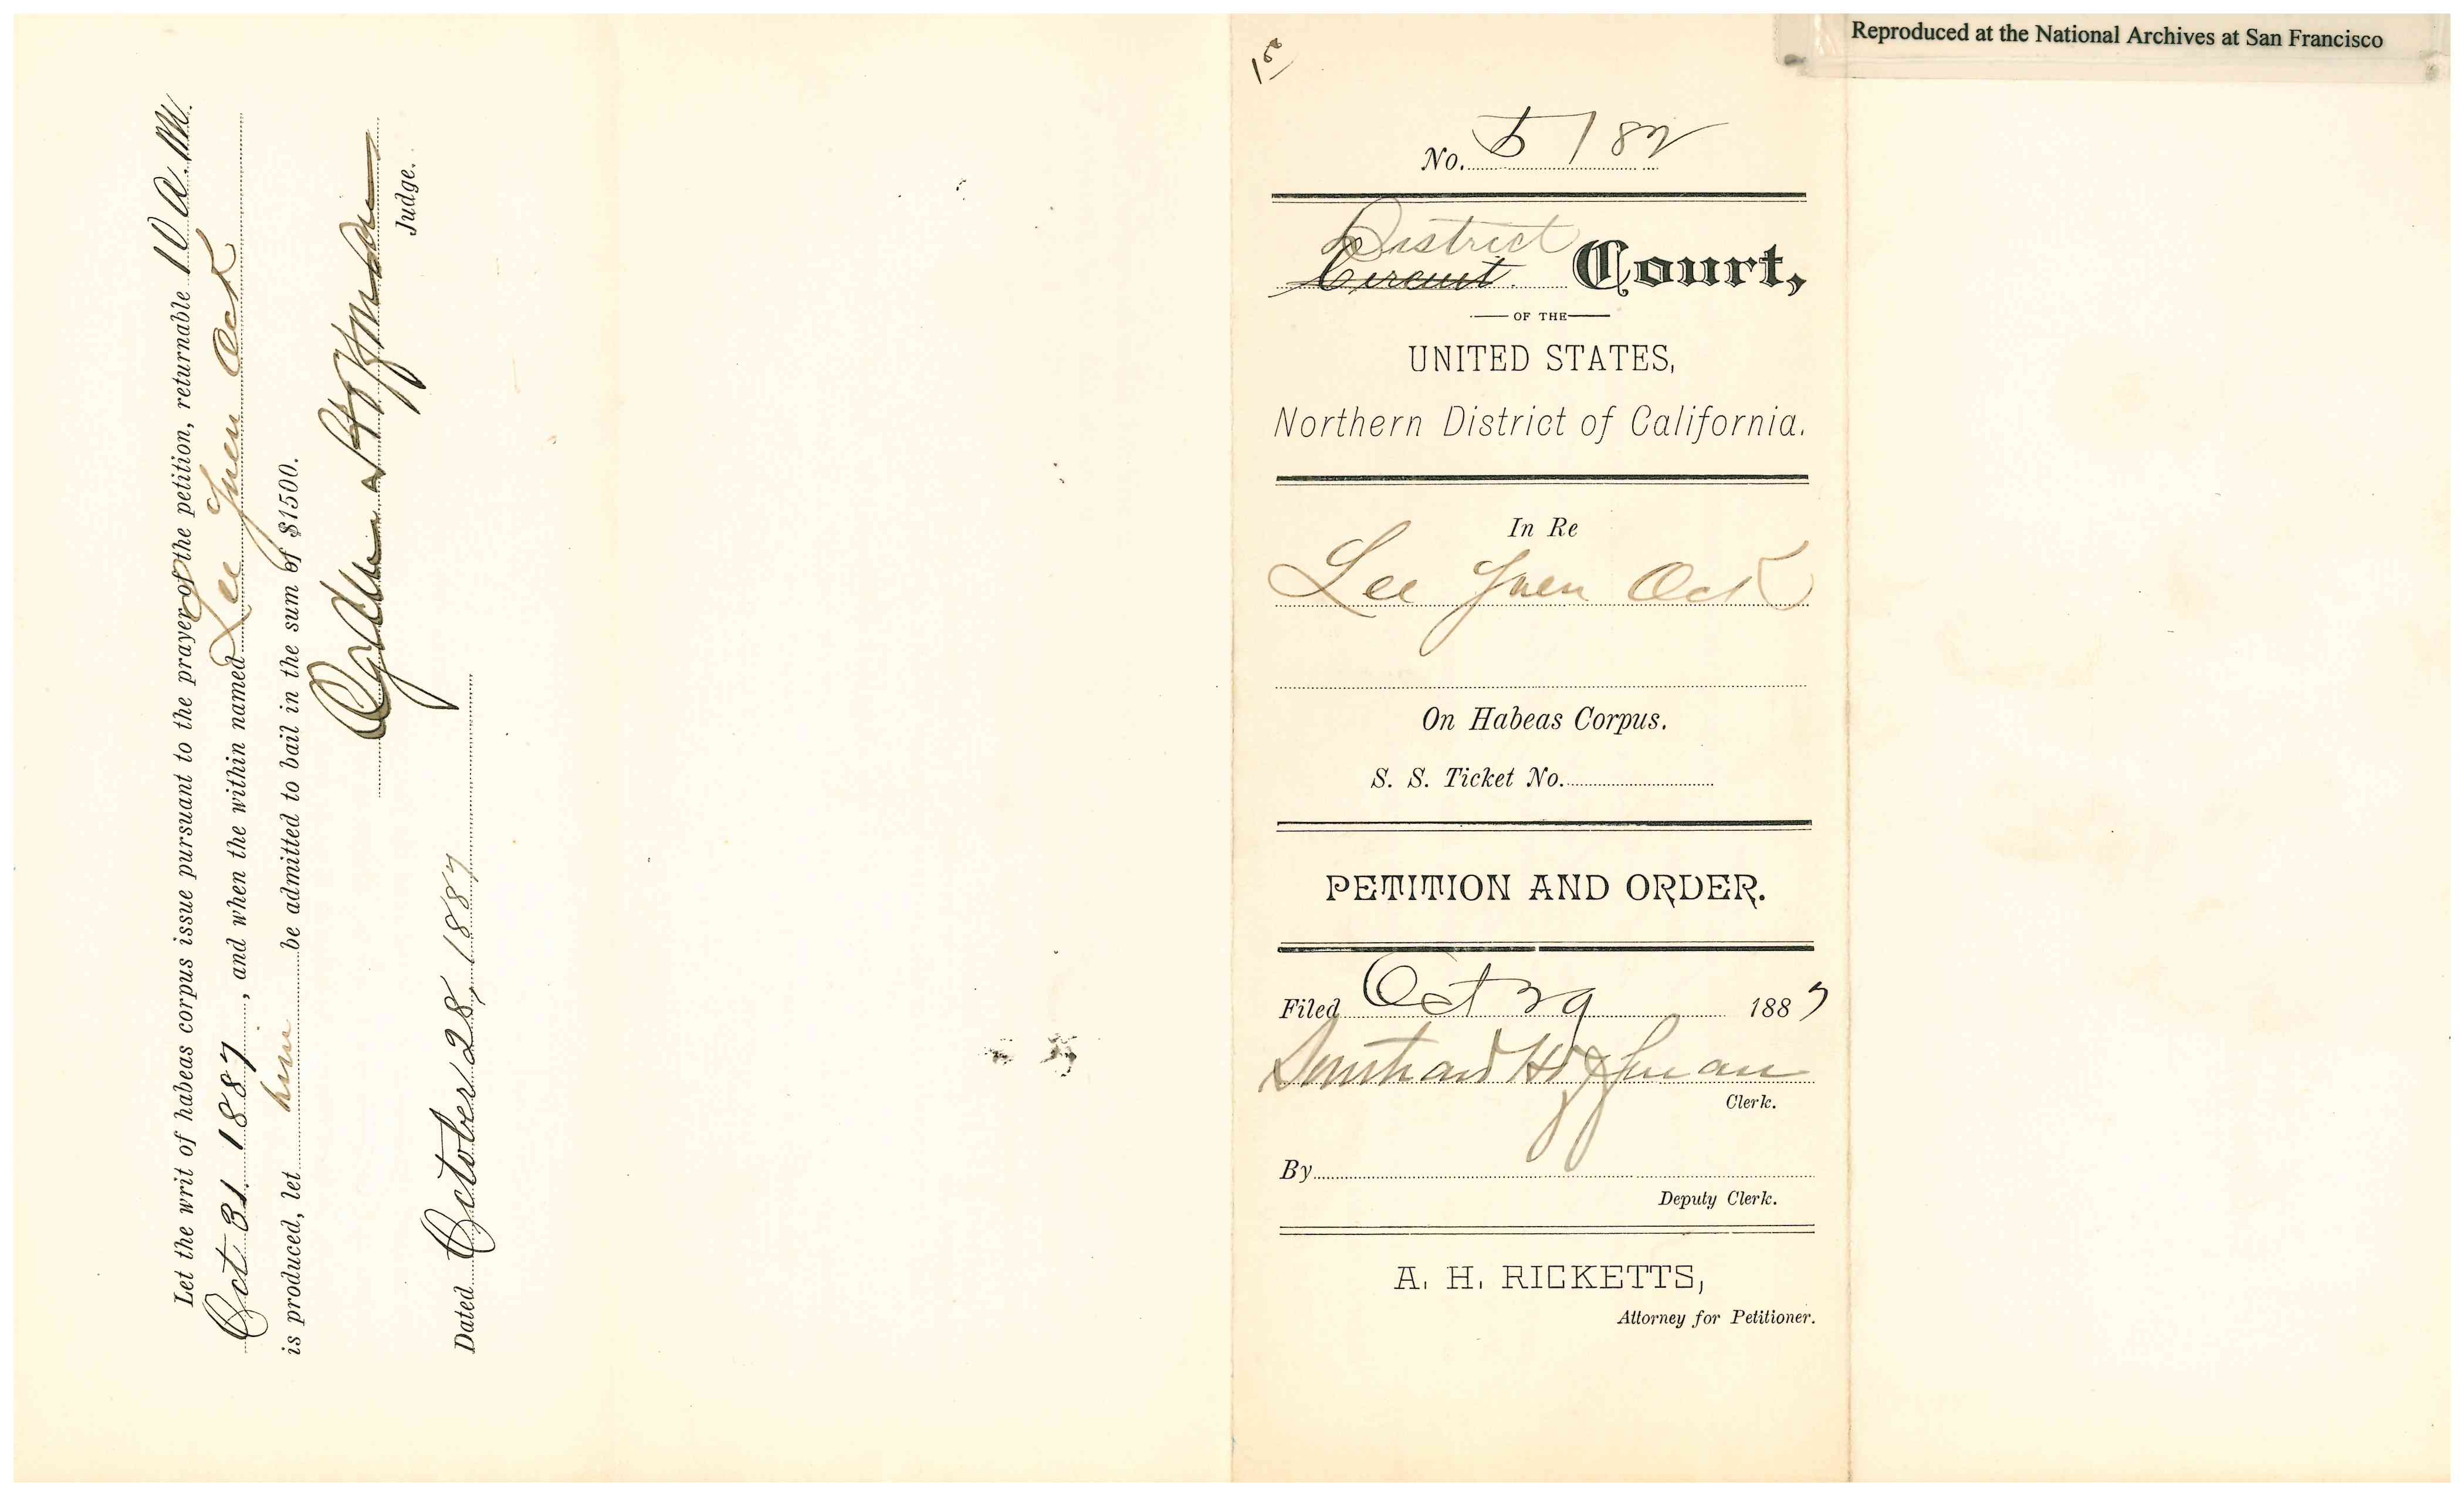 Let the writ of habeas corpus issue pursuant to the prayer of the petition, returnable 10 A.M.
Oct 31 1887, and when the within named Lee Yuen Ock
is produced, let him be admitted to bail in the sum of $1500.
Ogden Hoffman
Judge.
Dated October 28, 1887
Reproduced at the National Archives at San Francisco
No. 5182
District
Circuit Court,
OF THE
UNITED STATES,
Northern District of California.
In Re
Lee Yuen Ock
On Habeas Corpus.
S. S. Ticket No.
PETITION AND ORDER.
Filed Oct 29 1887
Southard Hoffman
Clerk.
By
Deputy Clerk.
A. H. RICKETTS,
Attorney for Petitioner.